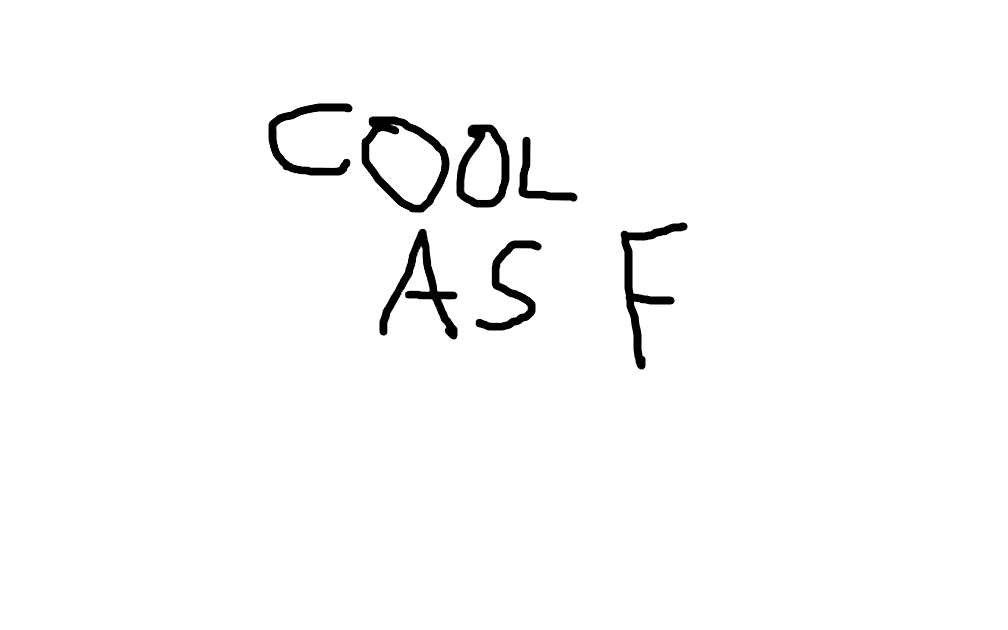 COOL
AS F